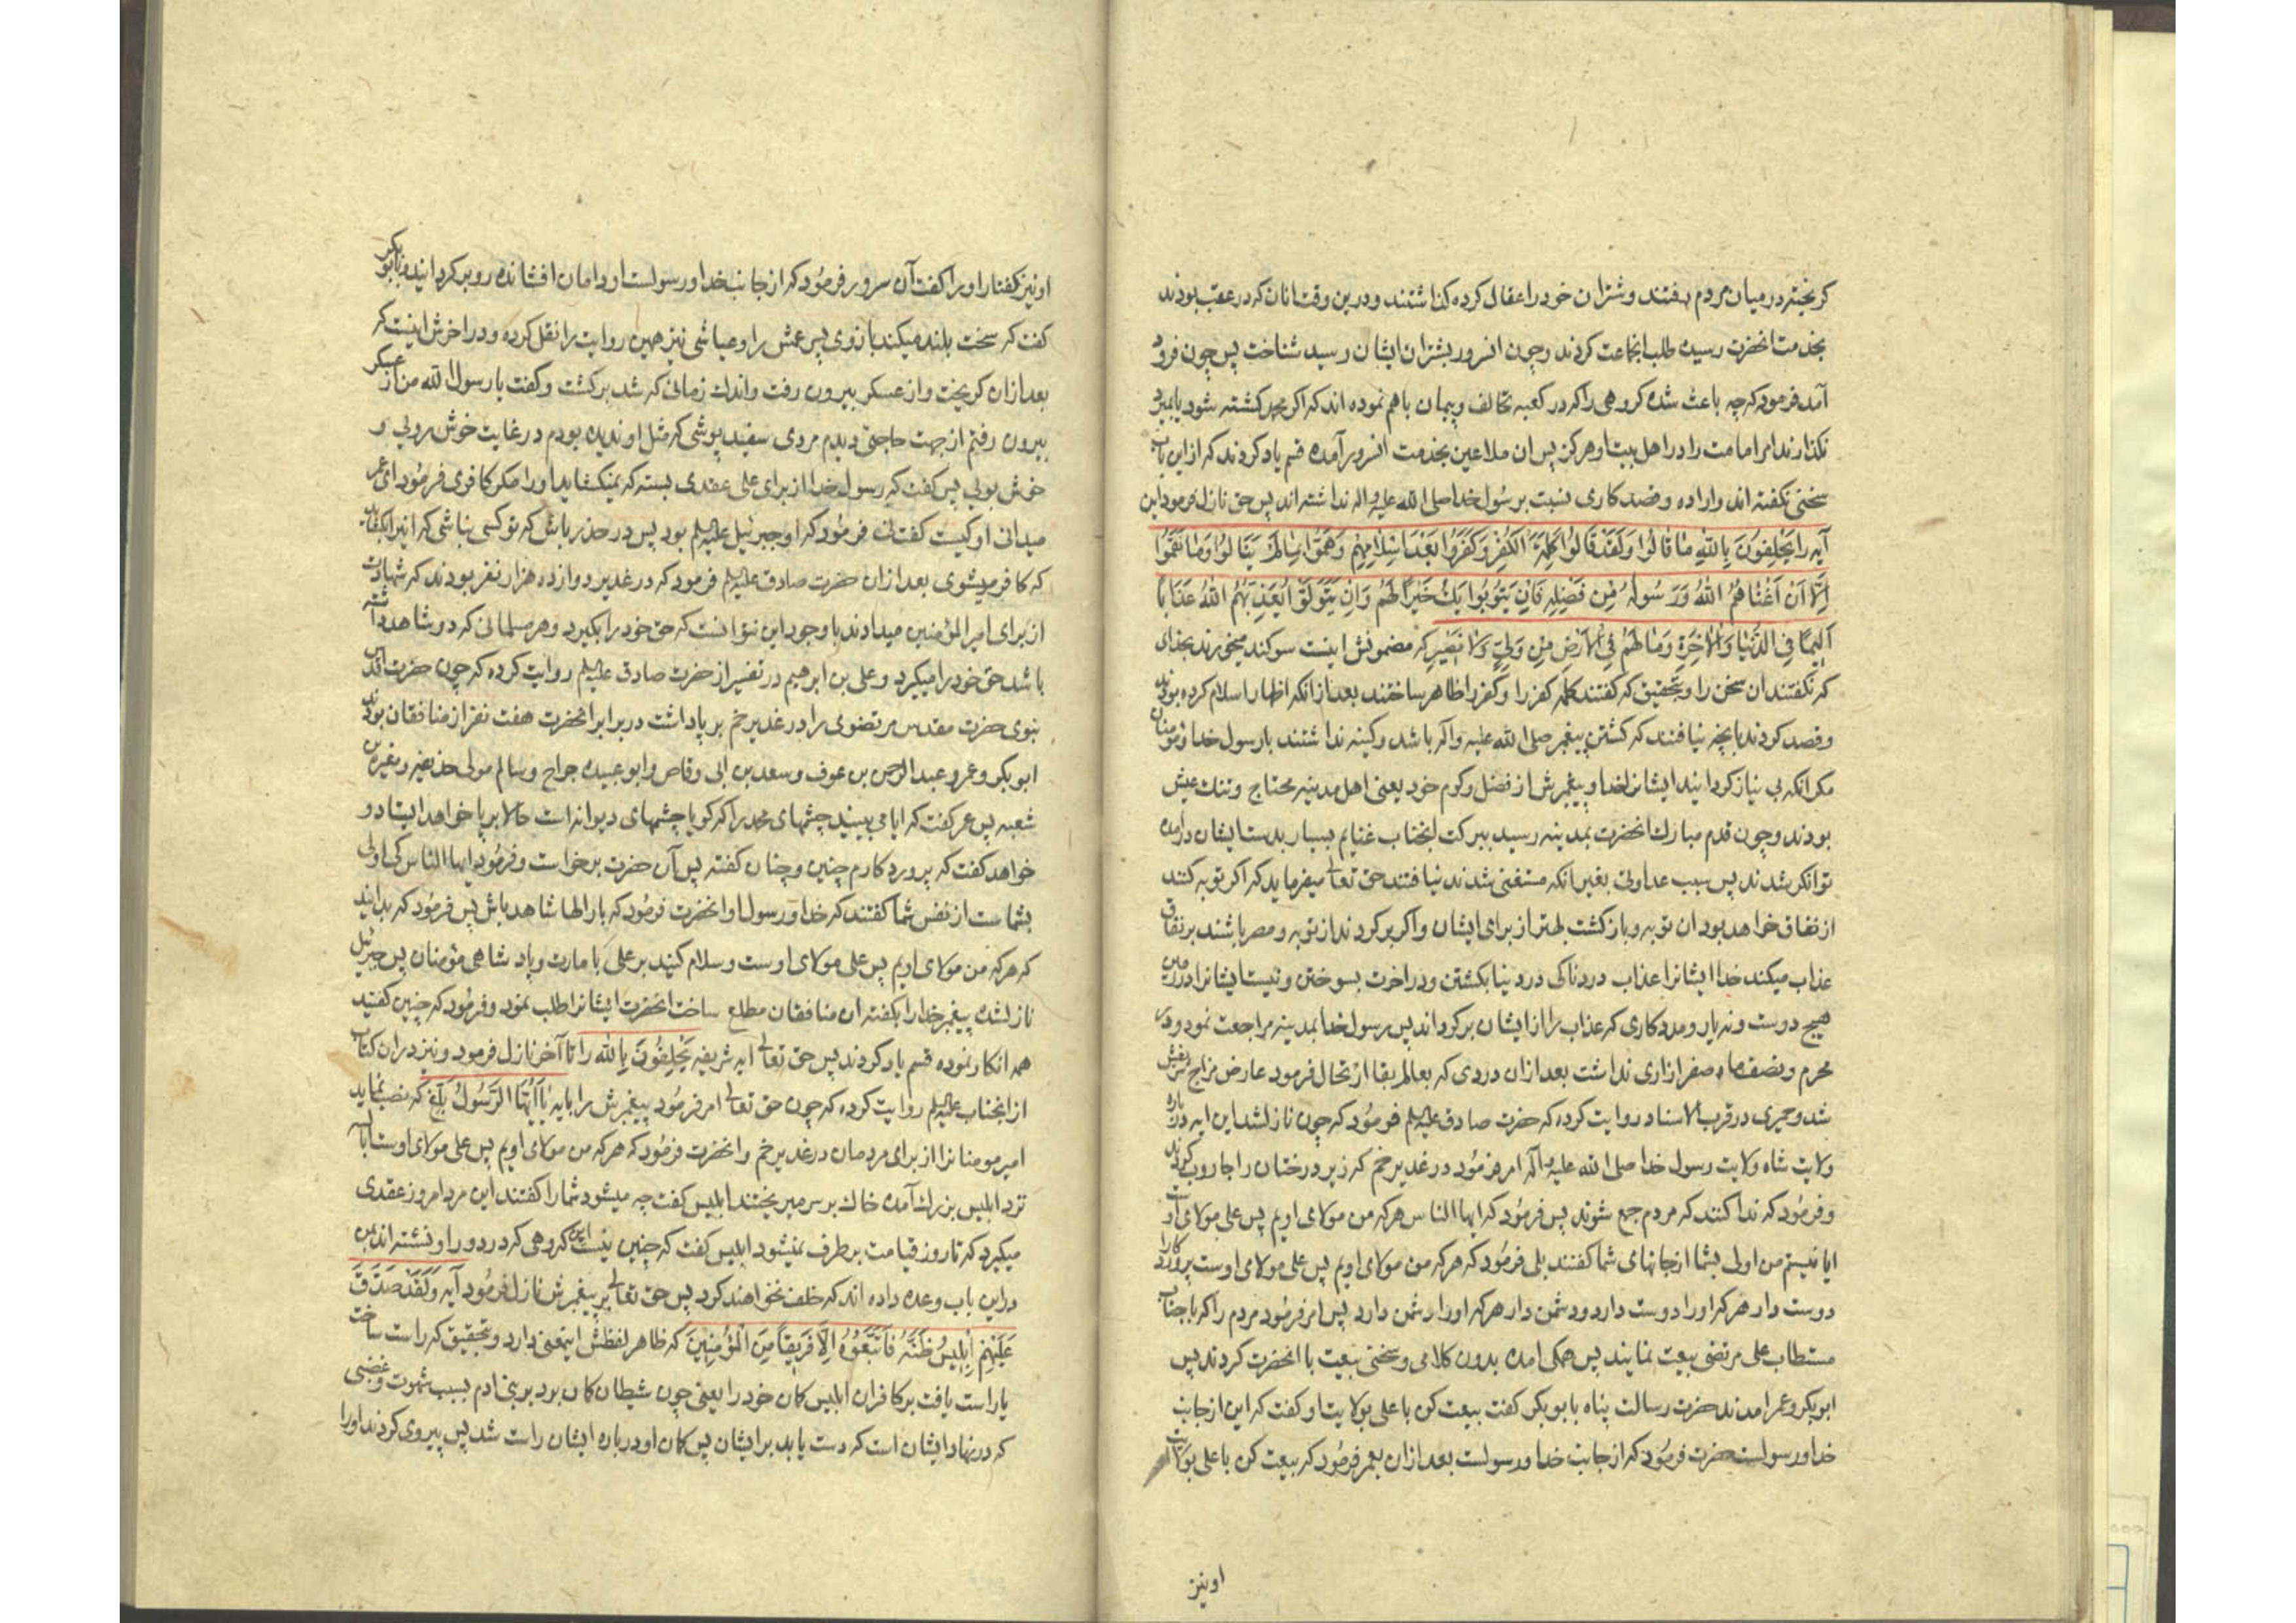 کریخته در میان مردم رفتند و شتران خود را عقال کرده گذاشتند و درین وقت انان که در عقب بودند
بخدمت انحضرت رسیده طلب انجماعت کردند و چون انسرور بشتران ایشان رسید شناخت پس چون فرود
آمد فرمود که چه باعث شده کروهی را که در کعبه تحالف و پیمان باهم نموده اند که اکر محمد کشته شود یا بمیرد
نکذارند امر امامت را در اهل بیت او هرکز پس ان ملاعین بخدمت انسرور آمده قسم یاد کردند که از این باب
سخنی نکفته اند و اراده و قصد کاری نسبت برسول خدا صلی الله علیه واله نداشته اند پس حق نازل فرمود این
آیه را یَحْلِفُونَ بِاللهِ مٰا قٰالُوا وَلَقَدْ قٰالُوا کَلِمَةَ الْکُفْرِ وَکَفَرُوا بَعْدَ اِسْلٰامِهِمْ وَهَمُّوا بِمٰا لَمْ یَنٰالُوا وَمٰا نَقَمُوا
اِلّٰا اَنْ اَغْنٰاهُمُ اللهُ وَرَسُولُهُ مِنْ فَضْلِهِ فَاِنْ یَتُوبُوا یَکُ خَیْراً لَهُمْ وَاِنْ یَتَوَلَّوْا یُعَذِّبْهُمُ اللهُ عَذٰاباً
اَلِیماً فِی الدُّنْیٰا وَالْاٰخِرَةِ وَمٰا لَهُمْ فِی الْاَرْضِ مِنْ وَلِیٍّ وَلٰا نَصِیرٍ که مضمونش اینست سوکند میخورند بخدای
که نکفتند ان سخن را و بتحقیق که کفتند کلمه کفر را و کفر را ظاهر ساختند بعد از انکه اظهار اسلام کرده بودند
و قصد کردند بانچه نیافتند که کشتن پیغمبر صلی الله علیه واله باشد و کینه نداشتند با رسول خدا و مؤمنان
مکر انکه بی نیاز کردانید ایشانرا خدا و پیغمبرش از فضل و کرم خود یعنی اهل مدینه محتاج و تنک عیش
بودند و چون قدم مبارک انحضرت بمدینه رسید ببرکت انجناب غنایم بسیار بدست ایشان درآمده
توانکر شدند پس سبب عداوتی بغیر انکه مستغنی شدند نیافتند حق تعالی میفرماید که اکر توبه کنند
از نفاق خواهد بود ان توبه و بازکشت بهتر از برای ایشان و اکر برکردند از توبه و مصر باشند بر نفاق
عذاب میکند خدا ایشانرا عذاب دردناکی در دنیا بکشتن و در اخرت بسوختن و نیست ایشانرا در زمین
هیچ دوست و نه یار و مددکاری که عذاب را از ایشان برکرداند پس رسول خدا بمدینه مراجعت نمود و در
محرم و نصف ماه صفر ازاری نداشت بعد از ان دردی که بعالم بقا ارتحال فرمود عارض مزاج شریفش
شد و حمیری در قرب الاسناد روایت کرده که حضرت صادق علیه السلم فرمود که چون نازل شد این ایه در باره
ولایت شاه ولایت رسول خدا صلی الله علیه واله امر فرمود در غدیر خم که زیر درختان را جاروب کردند
و فرمود که ندا کنند که مردم جمع شوند پس فرمود که ایها الناس هر که من مولای اویم پس علی مولای اوست
ایا نیستم من اولی بشما از جانهای شما کفتند بلی فرمود که هر که من مولای اویم پس علی مولای اوست پروردکارا
دوست دار هر که او را دوست دارد و دشمن دار هر که او را دشمن دارد پس امر فرمود مردم را که با جناب
مستطاب علی مرتضی بیعت نمایند پس همکی امده بدون کلامی و سخنی بیعت با انحضرت کردند پس
ابوبکر و عمر امدند حضرت رسالت پناه بابوبکر کفت بیعت کن با علی بولایت او کفت که این از جانب
خدا و رسولست حضرت فرمود که از جانب خدا و رسولست بعد از ان بعمر فرمود که بیعت کن با علی بولایت
اونیز
او نیز کفتار او را کفت آن سرور فرمود که از جانب خدا و رسولست او دامان افشانده رو برکردانید و بابوبکر
کفت که سخت بلند میکند بازوی پسر عمش را و عیاشی نیز همین روایت را نقل کرده و در اخرش اینست که
بعد از ان کریخت و از عسکر بیرون رفت و اندک زمانی که شد برکشت و کفت یا رسول الله من از عسکر
بیرون رفتم از جهت حاجتی دیدم مردی سفید پوشی که مثل او ندیده بودم در غایت خوش روئی و
خوش بوئی پس کفت که رسول خدا از برای علی عقدی بسته که نمیکشاید او را مکر کافری فرمود ای عمر
میدانی او کیست کفت نه فرمود که او جبرئیل علیه السلم بود پس در حذر باش که تو کسی نباشی که انرا بکشاید
که کافر میشوی بعد از ان حضرت صادق علیه السلم فرمود که در غدیر دوازده هزار نفر بودند که شهادت
از برای امیر المؤمنین میدادند با وجود این نتوانست که حق خود را بکیرد و هر مسلمانی که دو شاهد داشته
باشد حق خود را میکیرد و علی بن ابرهیم در تفسیر از حضرت صادق علیه السلم روایت کرده که چون حضرت اقدس
نبوی حضرت مقدس مرتضوی را در غدیر خم بر پا داشت در برابر انحضرت هفت نفر از منافقان بودند
ابوبکر و عمر و عبد الرحمن بن عوف و سعد بن ابی وقاص و ابوعبیده جراح و سالم مولی حذیفه و مغیرة بن
شعبه پس عمر کفت که ایا می بینید چشمهای محمد را که کویا چشمهای دیوانه است حالا بر پا خواهد ایستاد و
خواهد کفت که پروردکارم چنین و چنان کفته پس آن حضرت برخواست و فرمود ایها الناس کی اولی
بشماست از نفس شما کفتند که خدا و رسول او انحضرت فرمود که بار الها شاهد باش پس فرمود که بدانید
که هر که من مولای اویم پس علی مولای اوست و سلام کنید بر علی بامارت و پادشاهی مؤمنان پس جبرئیل
نازلشده پیغمبر خدا را بکفته ان منافقان مطلع ساخت انحضرت ایشانرا طلب نمود و فرمود که چنین کفتید
همه انکار نموده قسم یاد کردند پس حق تعالی ایه شریفه یَحْلِفُونَ بِالله را تا آخر نازل فرمود و نیز در ان کتاب
از انجناب علیه السلم روایت کرده که چون حق تعالی امر فرمود پیغمبرش را بایه یٰا اَیُّهَا الرَّسُولُ بَلِّغْ که نصب نماید
امیر مومنانرا از برای مردمان در غدیر خم و انحضرت فرمود که هر که من مولای اویم پس علی مولای اوست ابالسه
نزد ابلیس بزرک آمده خاک بر سر میریختند ابلیس کفت چه میشود شما را کفتند این مرد امروز عقدی
میکیرد که تا روز قیامت برطرف نمیشود ابلیس کفت که چنین نیست این کروهی که در دور او نشسته اند بمن
در این باب وعده داده اند که خلف نخواهند کرد پس حق تعالی بر پیغمبرش نازل فرمود آیه وَلَقَدْ صَدَّقَ
عَلَیْهِمْ اِبْلِیسُ ظَنَّهُ فَاتَّبَعُوهُ اِلَّا فَرِیقاً مِنَ الْمُؤْمِنِینَ که ظاهر لفظش اینمعنی دارد و بتحقیق که راست ساخت
یا راست یافت بر کافران ابلیس کمان خود را یعنی چون شیطان کمان برد بر بنی ادم بسبب شهوت و غضبی
که در نهاد ایشان است که دست یابد بر ایشان پس کمان او در باره ایشان راست شد پس پیروی کردند او را